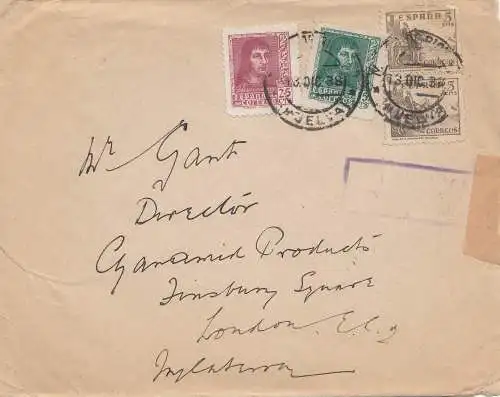 ESPAÑA 5
CORREOS
25
ESPAÑA
CORREOS
ESPAÑA
13.DIC.38
HUELVA
13.DIC.38
HUELVA
5
CORREOS
Mr Gant
Director
Cyanamid Products
Finsbury Square
London E.C.2
Inglaterra